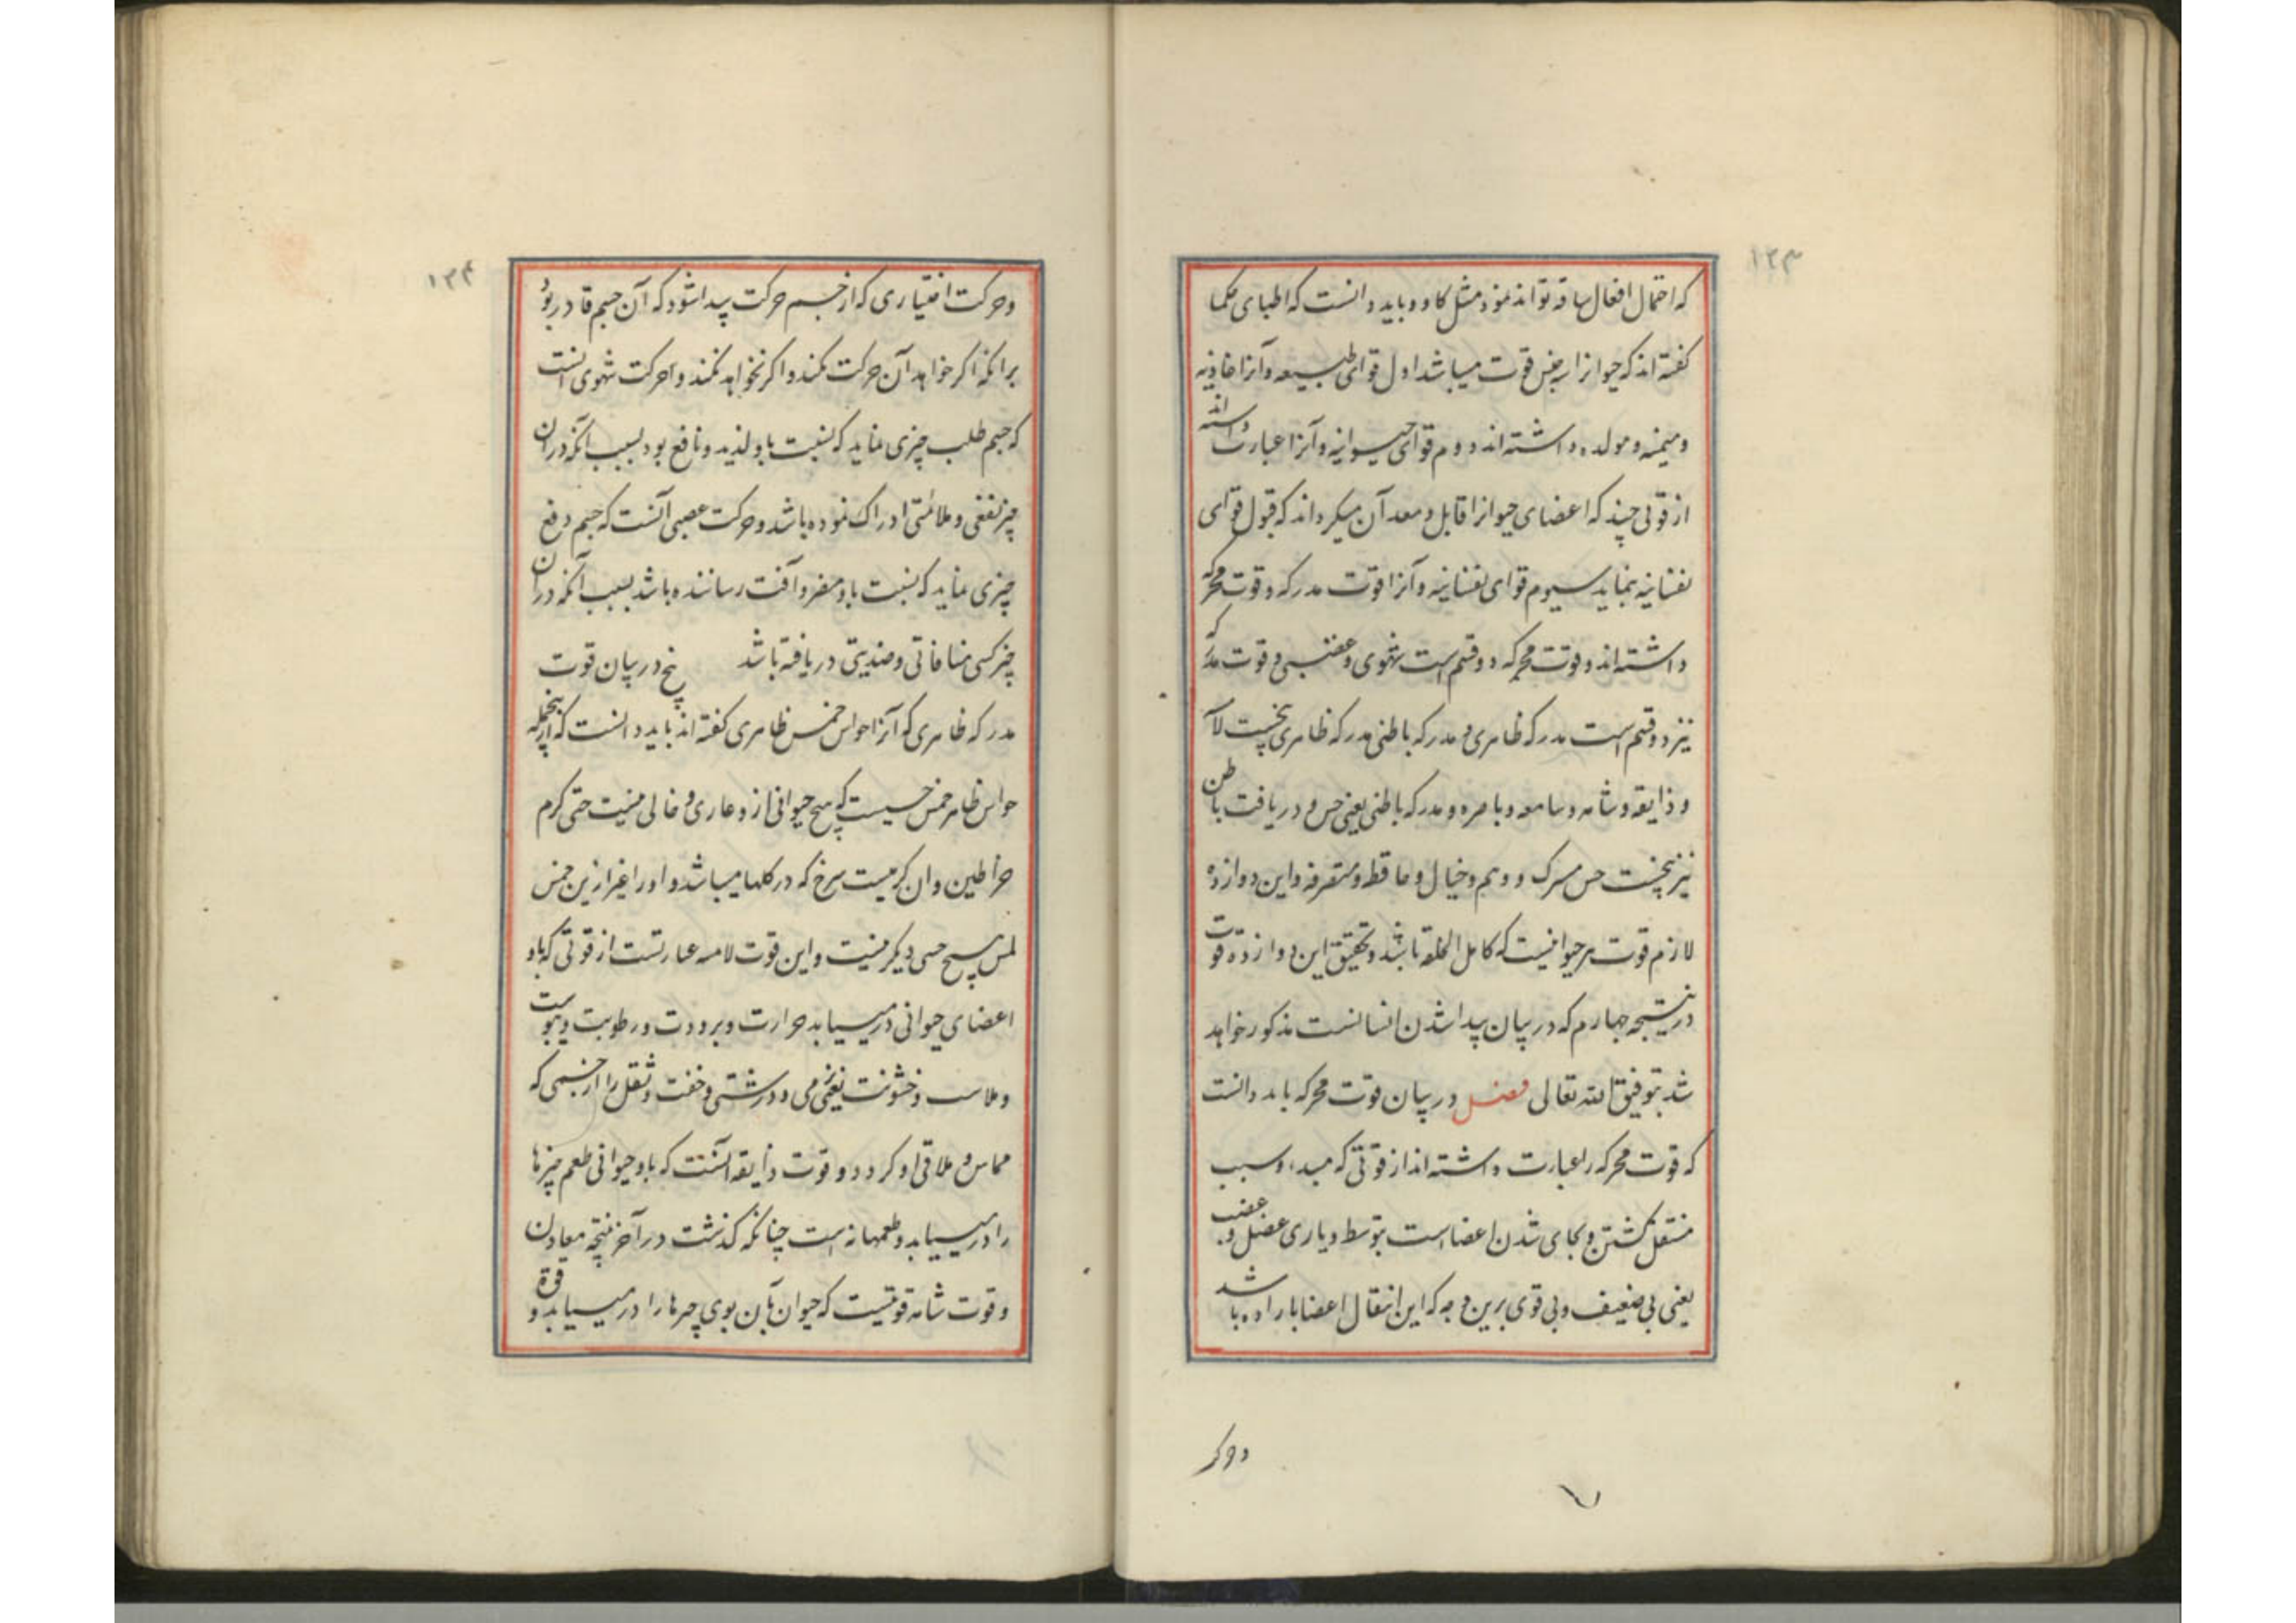 ۱۲۳
که احتمال افعال ساقه تواند نمود مثل کاو و باید دانست که اطبای حکما
کفته اند که حیوانرا سه جنس قوت میباشد اول قوای طبیعه وآنرا غاذیه
ومیمنه ومولده داشته اند دوم قوای حیوانیه وآنرا عبارت داشته اند
از قوتی چند که اعضای حیوانرا قابل ومعد آن میکرداند که قبول قوای
نفسانیه بنماید سیوم قوای نفسانیه وآنرا قوت مدرکه وقوت محرکه
داشته اند وقوت محرکه دو قسم است شهوی وغضبی وقوت مدرکه
نیز دو قسم است مدرکه ظاهری ومدرکه باطنی مدرکه ظاهری پنجست
وذایقه وشامه وسامعه وباصره ومدرکه باطنی یعنی حس ودریافت باطن
نیز پنجست حس مسرک ووهم وخیال وحافظه ومتصرفه واین دوازده
لازم قوت هر حیوانیست که کامل الخلقه باشد وتحقیق این دوازده قوت
در نتیجه چهارم که در بیان پیدا شدن انسانست مذکور خواهد
شد بتوفیق الله تعالی فصل در بیان قوت محرکه باید دانست
که قوت محرکه را عبارت داشته اند از قوتی که مبدء وسبب
منتقل کشتن وبجای شدن اعضا است بتوسط ویاری عضل وعصب
یعنی پی ضعیف وپی قوی برین وجه که این انتقال اعضا باراده باشد
وحرکت
۱۲۴
وحرکت اختیاری که از جسم حرکت پیدا شود که آن جسم قادر بود
برانکه اکر خواهد آن حرکت بکند واکر نخواهد نکند واحرکت شهوی انست
که جسم طلب چیزی نماید که نسبت باو لذید ونافع بود بسبب آنکه دران
چیز نفعی وملائمتی ادراک نموده باشد وحرکت عصبی آنست که جسم دفع
چیزی نماید که نسبت باو مضر وآفت رساننده باشد بسبب آنکه دران
چیز کسی منافاتی وضدیتی دریافته باشد پنج در بیان قوت
مدرکه ظاهری که آنرا حواس خمس ظاهری کفته اند باید دانست که ازجمله
حواس ظاهر خمس حسیست که هیچ حیوانی ازو عاری وخالی نیست حتی کرم
خراطین وان کرمیست سرخ که در کلها میباشد واورا غیر ازین حس
لمس هیچ حسی دیکر نیست واین قوت لامسه عبارتست از قوتی که باو
اعضای حیوانی درمییابد حرارت وبرودت ورطوبت ویبوست
وملاست وخشونت یعنی نرمی ودرشتی وخفت وثقل را از جسمی که
مماس وملاقی او کردد وقوت ذایقه آنست که باو حیوانی طعم چیزها
را درمییابد وطعمها نه است چنانکه کذشت در آخر نتیجه معادن
وقوت شامه قوتیست که حیوان بآن بوی چیزها را درمییابد وقوة